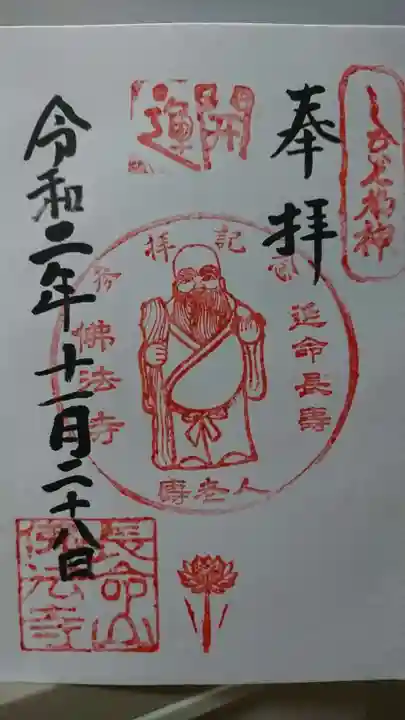 しながわ七福神
奉拝
開運
参拝記念
延命長壽
壽老人
佛法寺
令和二年十一月二十八日
長命山
佛法寺